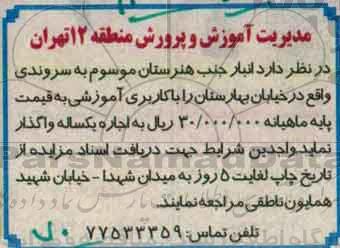 مدیریت آموزش و پرورش منطقه ۱۲ تهران
در نظر دارد انبار جنب هنرستان موسوم به سروندی
واقع در خیابان بهارستان را با کاربری آموزشی به قیمت
پایه ماهیانه ۳۰/۰۰۰/۰۰۰ ریال به اجاره یکساله واگذار
نماید واجدین شرایط جهت دریافت اسناد مزایده از
تاریخ چاپ لغایت ۵ روز به میدان شهدا - خیابان شهید
همایون ناطقی مراجعه نمایند.
تلفن تماس: ۷۷۵۳۳۳۵۹